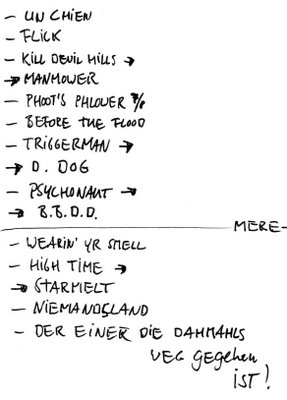 - UN CHIEN
- FLICK
- KILL DEVIL HILLS →
→ MANMOWER
- PHOOT'S PHLOWER
- BEFORE THE FLOOD
- TRIGGERMAN →
→ D. DOG
- PSYCHONAUT →
→ B.B.D.D.
MERE-
- WEARIN' YR SMELL
- HIGH TIME →
→ STARMELT
- NIEMANDSLAND
- DER EINER DIE DAHMAHLS
VEG gegehen
iST!